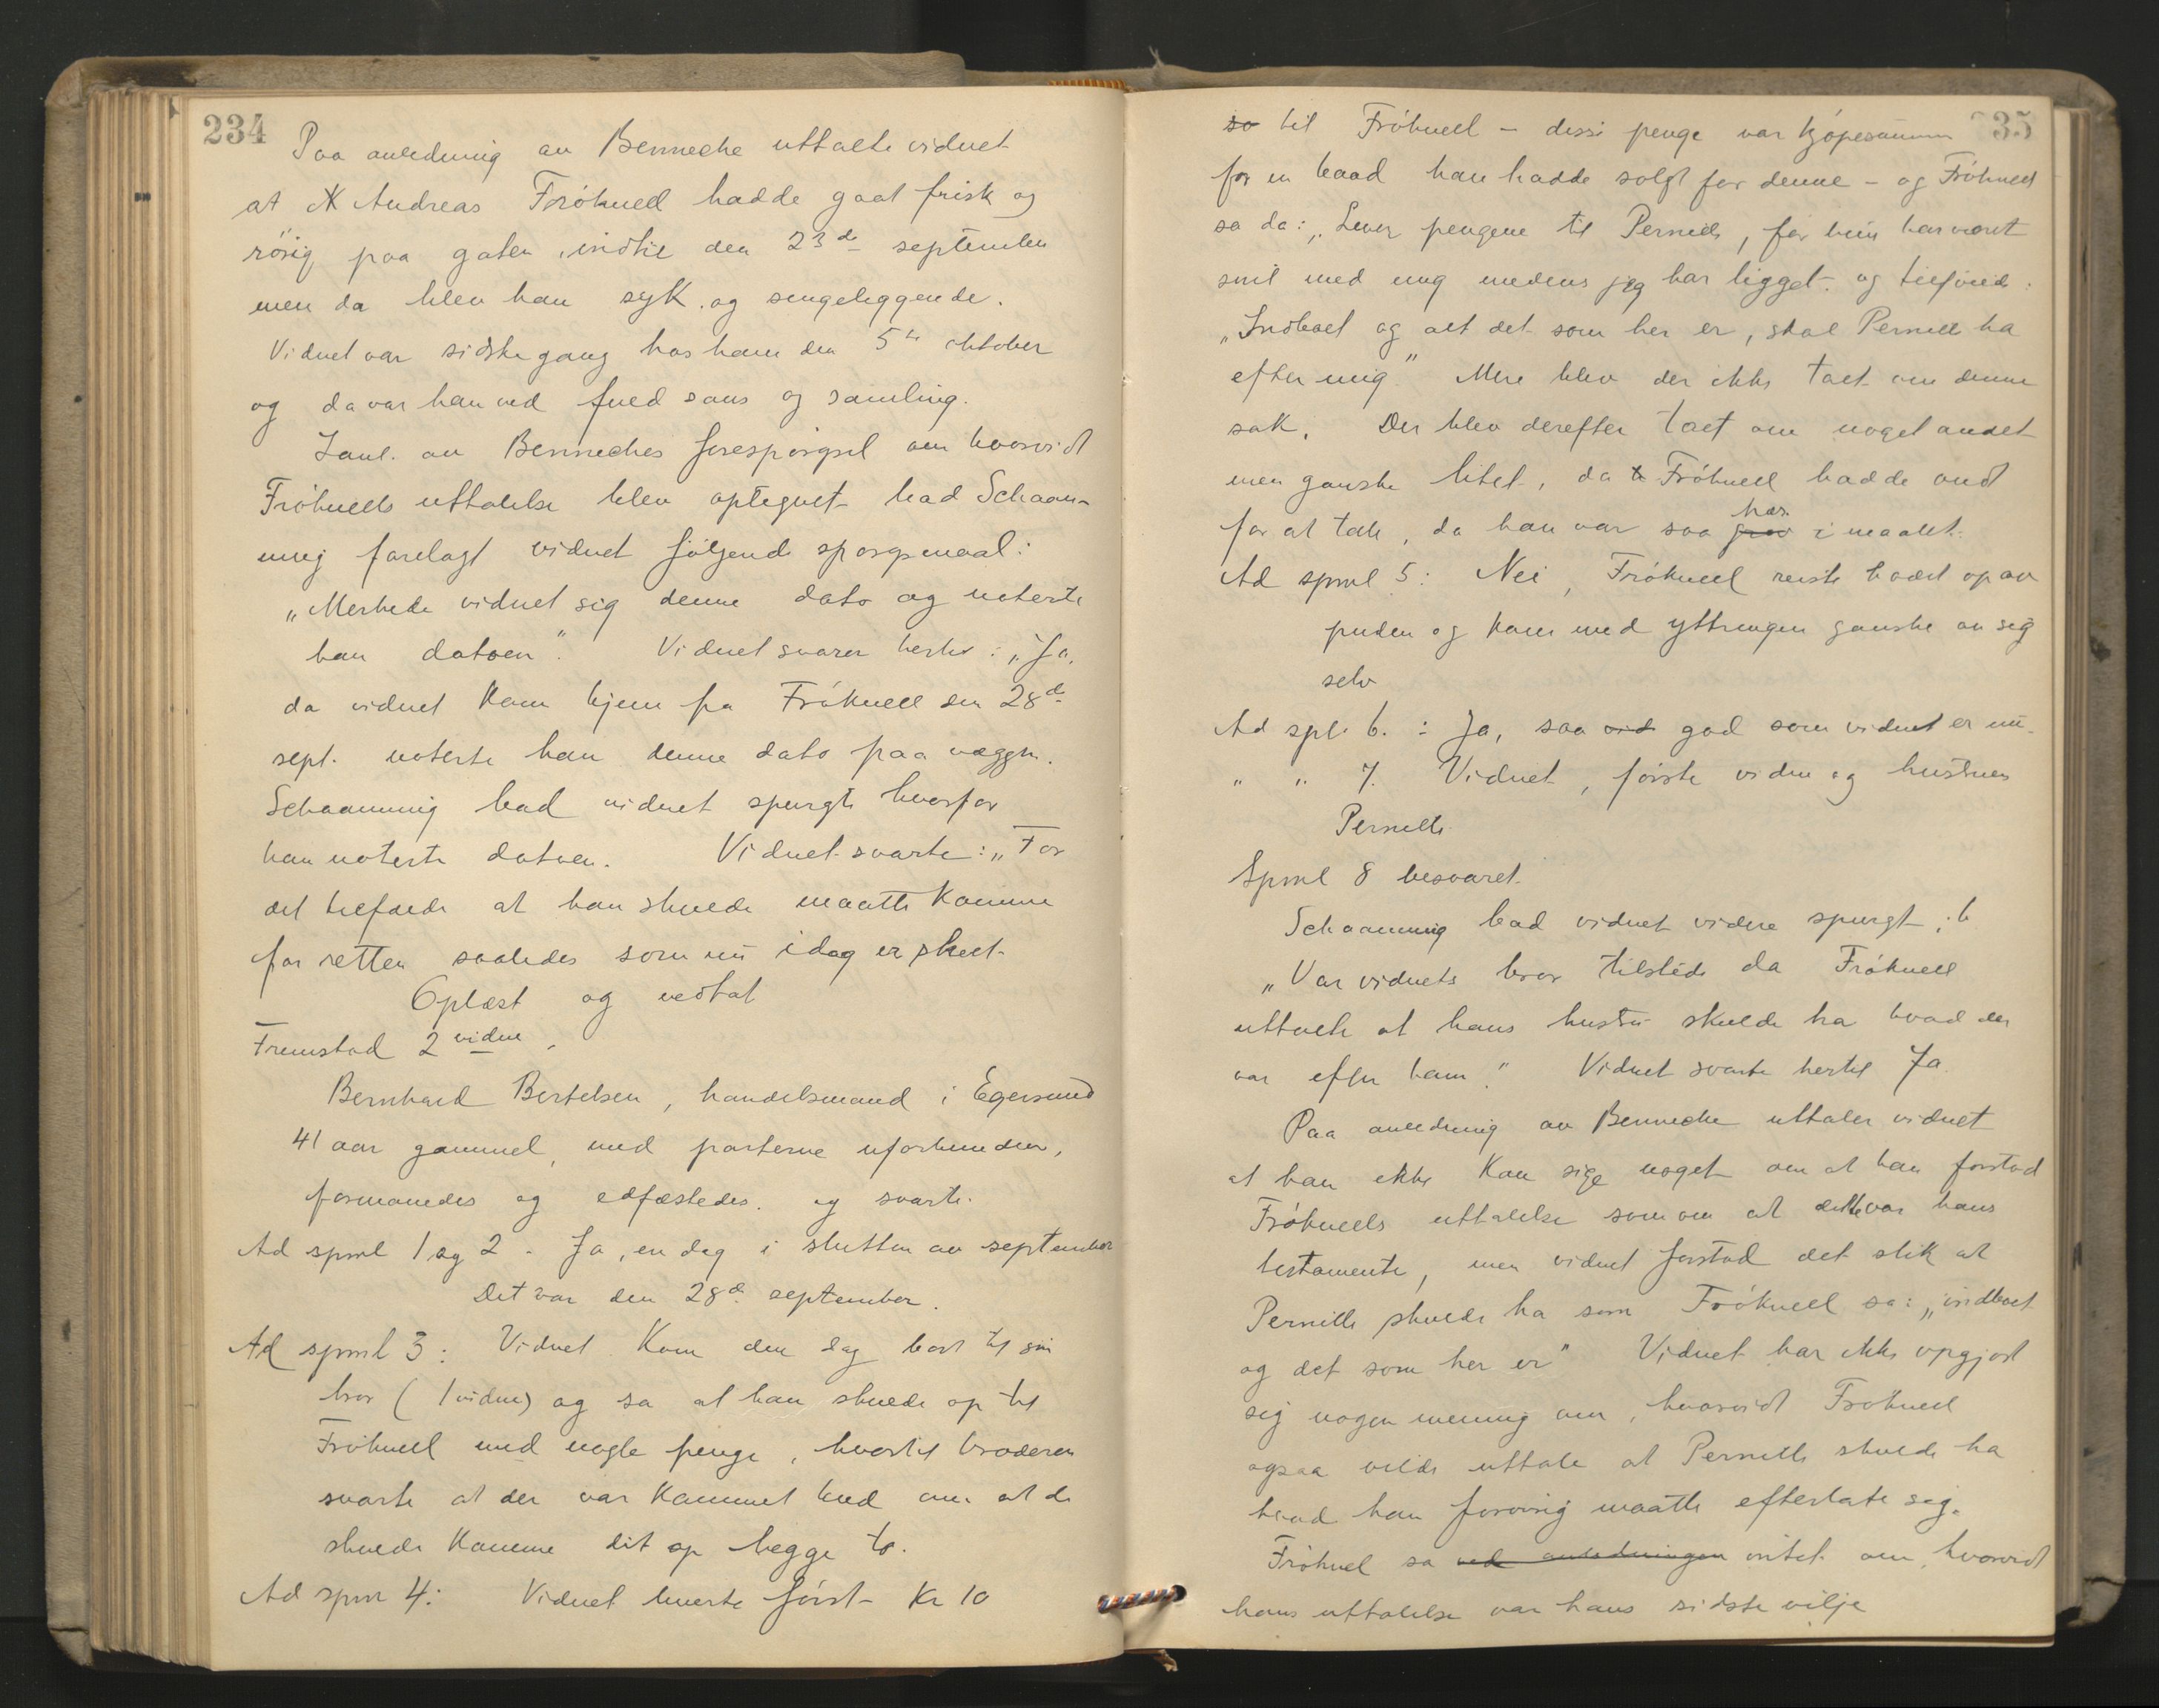 234
Paa anledning av Benneche uttalte vidnet
at Andreas Fröknell hadde gaat frisk og
rörig paa gaten indtil den 23de september
men da blev han syk og sengeliggende.
Vidnet var sidste gang hos ham den 5te oktober
og da var han ved fuld sans og samling.
I anl. av Benneches forespörgsel om hvorvidt
Fröknells uttalelse blev optegnet bad Schaan-
ning forelagt vidnet fölgende spörgsmaal:
„Merkede vidnet sig denne dato og noterte
han datoen". Vidnet svarer hertil: „Ja,
da vidnet kom hjem fra Fröknell den 28de
sept. noterte han denne dato paa væggen.
Schaanning bad vidnet spurgt hvorfor
han noterte datoen. Vidnet svarte: „For
det tilfælde at han skulde maatte komme
for retten saaledes som nu idag er skeet.
Oplæst og vedtat
Fremstod 2 vidne,
Bernhard Bertelsen, handelsmand i Egersund
41 aar gammel, med parterne uforbunden,
formanedes og edfæstedes og svarte.
Ad spml 1 og 2 - Ja, en dag i slutten av september
Det var den 28de september.
Ad spml 3: Vidnet kom den dag bort til sin
bror (1 vidne) og sa at han skulde op til
Fröknell med nogle penge, hvortil broderen
svarte at der var kommet bud om at de
skulde komme dit op begge to.
Ad spm 4: Vidnet leverte först Kr 10
35
so til Fröknell - disse penge var kjöpesummen
for en baad han hadde solgt for denne - og Fröknell
sa da: „Lever pengene til Pernille, for hun har været
snil med mig medens jeg har ligget - og tilföied:
„Indboet og alt det som her er, skal Pernille ha
efter mig" Mere blev der ikke talt om denne
sak. Der blev derefter talt om noget andet
men ganske litet, da Fröknell hadde ondt
for at tale, da han var saa grov hæs i maalet.
Ad spml 5: Nei, Fröknell reiste hodet op av
puden og kom med yttringen ganske av sig
selv
Ad spl. 6.: Ja, saa vid god som vidnet er nu.
" " 7. Vidnet, förste vidne og hustruen
Pernille
Spml 8 besvaret.
Schaanning bad vidnet videre spurgt:
„Var vidnets bror tilstede da Fröknell
uttalte at hans hustru skulde ha hvad der
var efter ham." Vidnet svarte hertil Ja.
Paa anledning av Bennecke uttaler vidnet
at han ikke kan sige noget om at han forstod
Fröknells uttalelse som om at dette var hans
testamente, men vidnet forstod det slik at
Pernille skulde ha som Fröknell sa: „indboet
og det som her er" Vidnet har ikke opgjort
sig nogen mening om, hvorvidt Fröknell
ogsaa vilde uttale at Pernille skulde ha
hvad han forövrig maatte efterlate sig.
Fröknel sa ved anledningen intet om, hvorvidt
hans uttalelse var hans sidste vilje